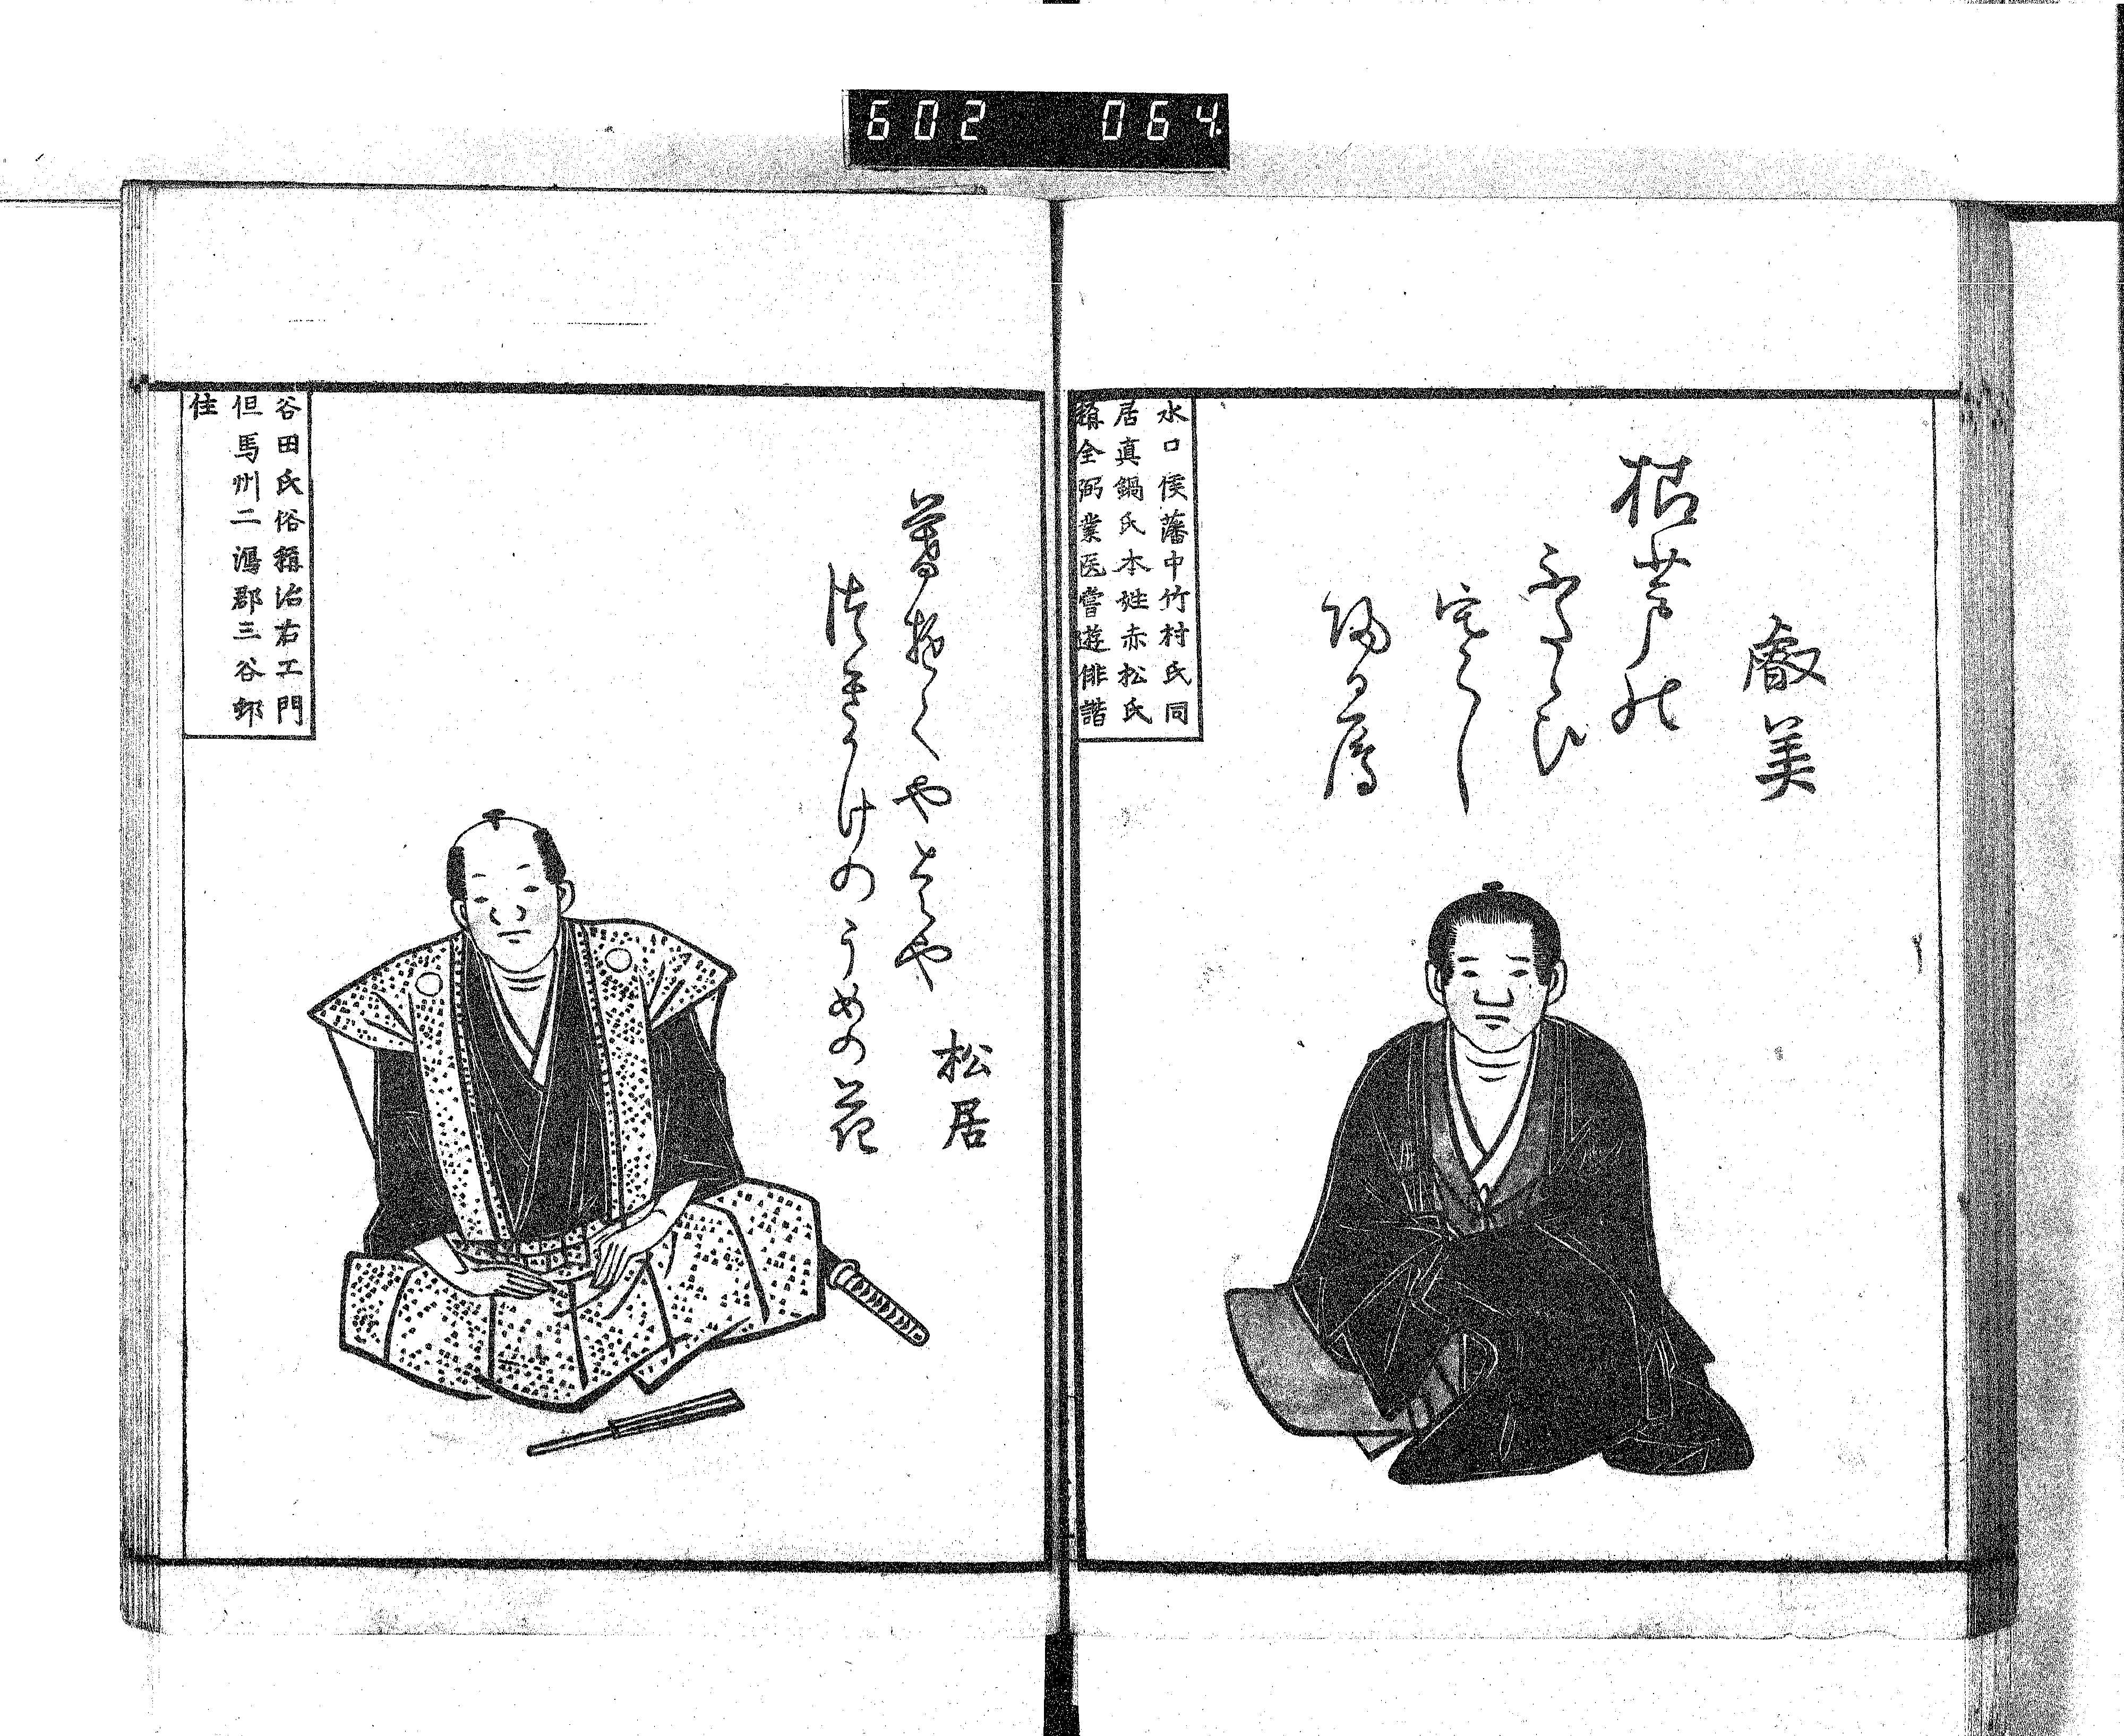 602 064
叡美
根芦の
帰る雁
水口侯藩中竹村氏同
居真鍋氏本姓赤松氏
稱全弼業医嘗遊俳諧
きかけのうめの花
松居
谷田氏俗稱治右エ門
但馬州二潟郡三谷邨
住